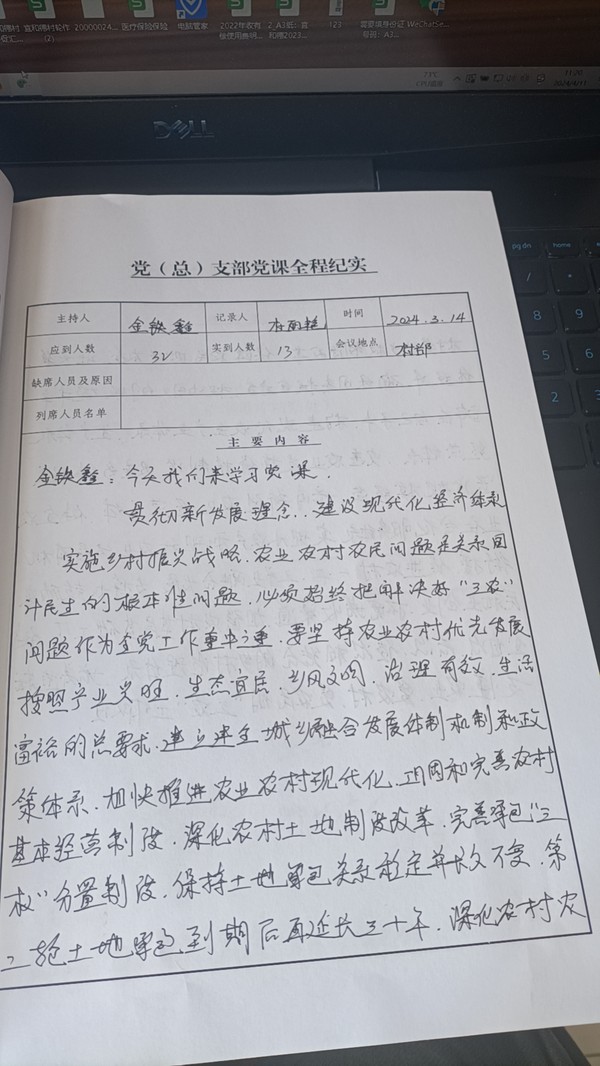 20000024...
医疗保险保险
电脑管家
123
DELL
pg dn
home
党（总）支部党课全程纪实
主持人 金铁鑫 记录人 时间 2024.3.14
应到人数 32 实到人数 13 会议地点 村部
缺席人员及原因
列席人员名单
主要内容
金铁鑫：今天我们来学习党课.
贯彻新发展理念..建设现代化经济体系
实施乡村振兴战略.农业农村农民问题是关系国
计民生的根本性问题.必须始终把解决好"三农"
问题作为全党工作重中之重.要坚持农业农村优先发展
按照产业兴旺.生态宜居.乡风文明.治理有效.生活
富裕的总要求.建立健全城乡融合发展体制机制和政
策体系.加快推进农业农村现代化.巩固和完善农村
基本经营制度.深化农村土地制度改革.完善承包"三
权"分置制度.保持土地承包关系稳定并长久不变.第
二轮土地承包到期后再延长三十年.深化农村农